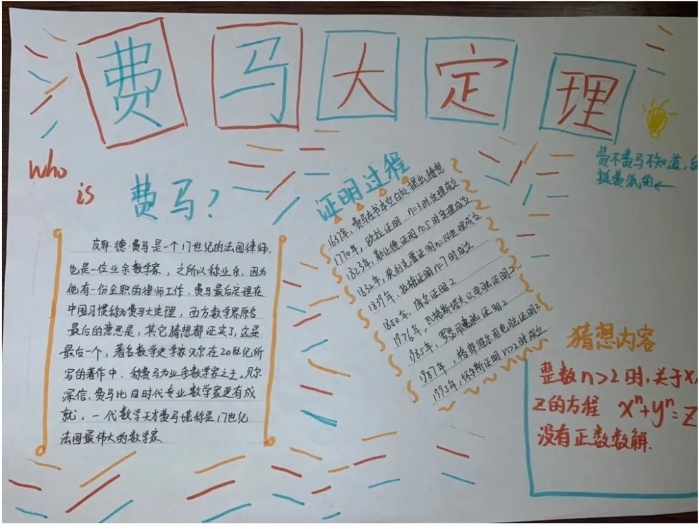 费马大定理
who
is 费马？
皮耶·德·费马是一个17世纪的法国律师，
也是一位业余数学家，之所以称业余，因为
他有一份全职的律师工作，费马最后定理在
中国习惯称为费马大定理，西方数学界原名
最后的意思是，其它猜想都证实了，这是
最后一个，著名数学史学家贝尔在20世纪所
写的著作中，称费马为业余数学家之王，贝尔
深信，费马比同时代专业数学家更有成
就，一代数学天才费马堪称是17世纪
法国最伟大的数学家
证明过程
1637年，费马在书本空白处提出猜想
1770年，欧拉证明 n=3时定理成立
1823年，勒让德证明n=5时定理成立
1832年，狄利克雷证明n=14时定理成立
1839年，拉梅证明n=7时成立
1850年，库默证明2
1976年，瓦格斯塔夫以电脑证明2
1985年，罗瑟用电脑证明2
1987年，格朗维尔用电脑证明2
1995年，怀尔斯证明n>2时成立
费不费马不知道，
挺费纸的←
猜想内容
整数n>2时，关于x,
z的方程 xⁿ+yⁿ=z
没有正数数解.